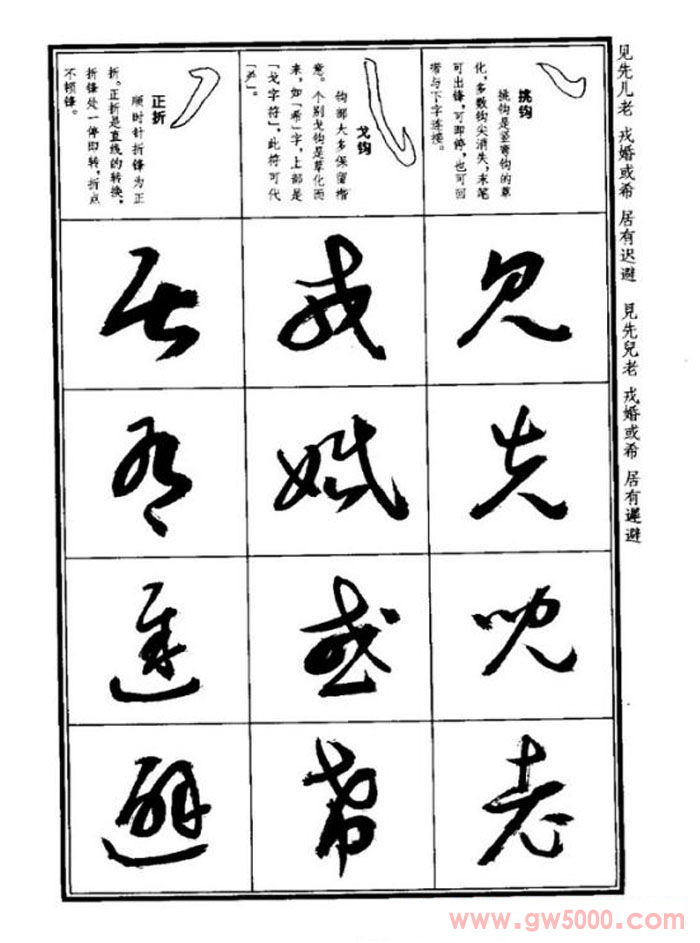 见先儿老 戎婚或希 居有迟避 見先兒老 戎婚或希 居有遲避
挑钩
挑钩是竖弯钩的草
化,多数钩尖消失,末笔
可出锋,可即停,也可回
带与下字连接。
戈钩
钩部大多保留楷
意。个别戈钩是草化而
来,如「希」字,上部是
「戈字符」,此符可代
正折
顺时针折锋为正
折。正折是直线的转换,
折锋处一停即转,折点
不顿锋。
见
先
兒
老
戎
婚
或
希
居
有
遲
避
www.gw5000.com